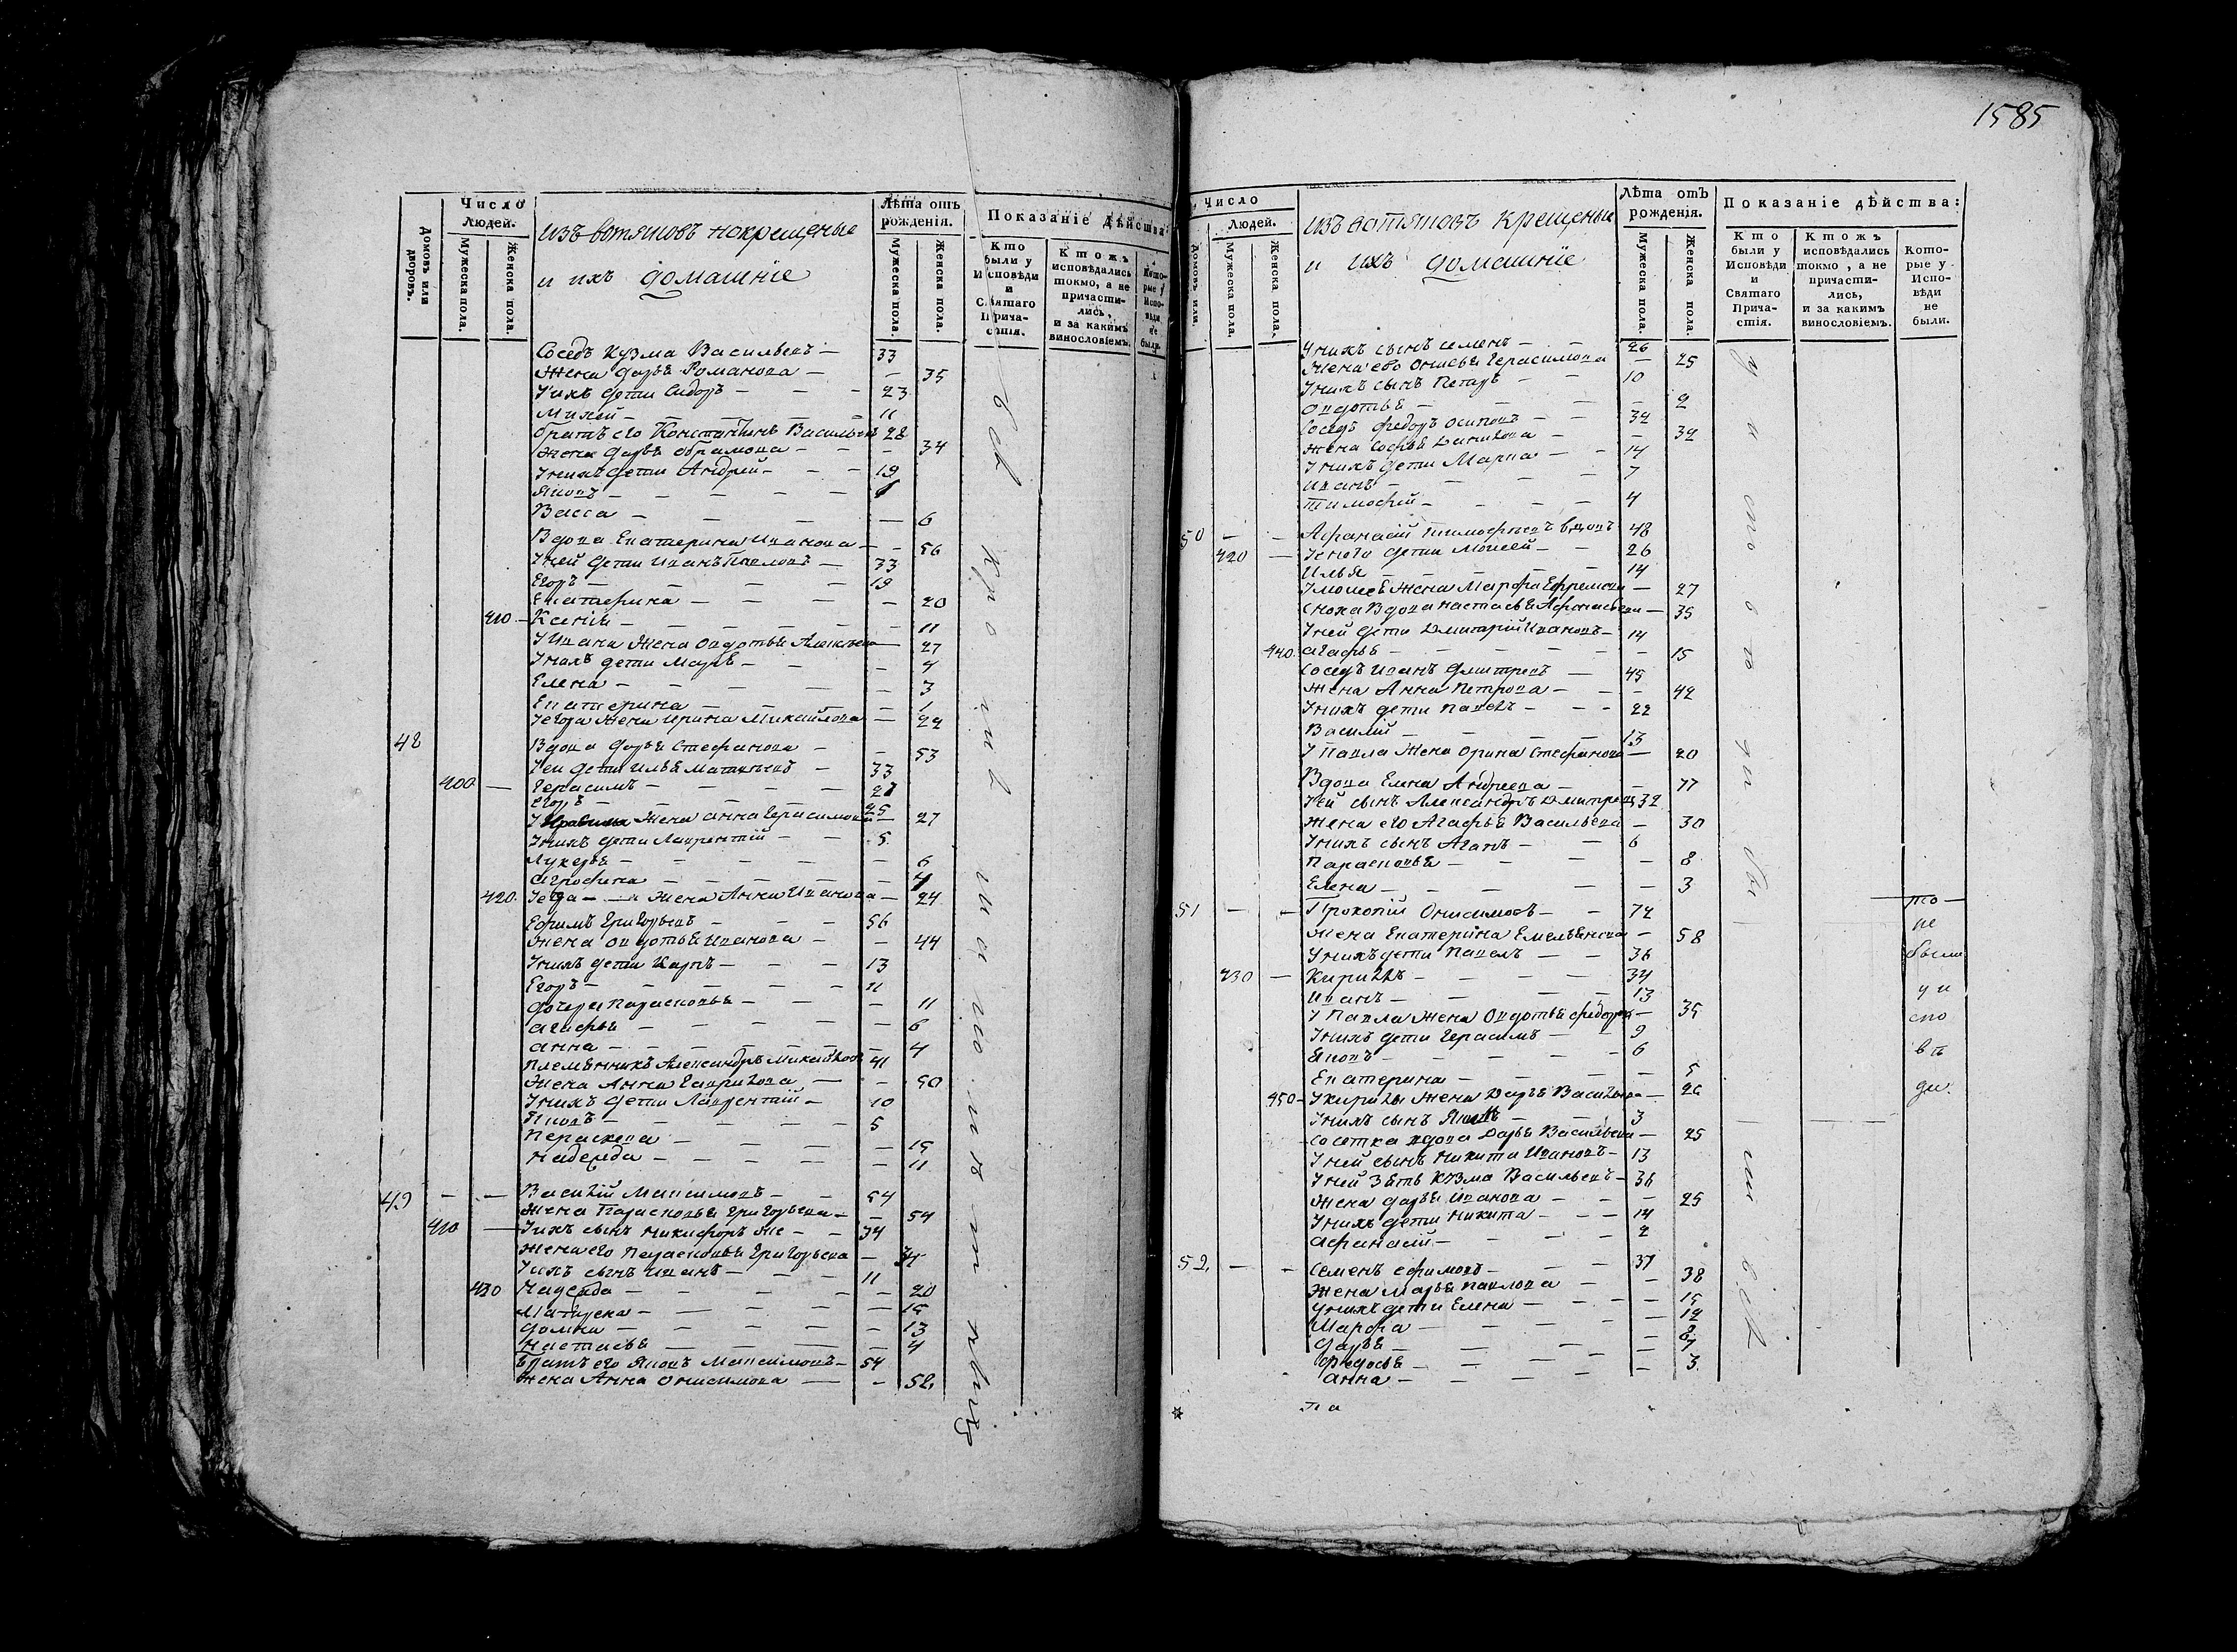 Число
Людей.
Домовъ или дворовъ.
Мужеска пола.
Женска пола.
изъ вотяковъ нокрещеные
и ихъ домашніе
Лѣта отъ
рожденія.
Мужеска пола.
Женска пола.
Показаніе дѣйства
Кто
были у
Исповѣди
и
Святаго
Прича-
стія.
Ктожъ
исповѣдались
токмо, а не
причасти-
лись,
и за какимъ
винословіемъ.
Кото-
рые у
Испо-
вѣди
не
были.
Соседъ Кузма Васильевъ — 33
Жена Дарья Романова — — 35
У ихъ дети Сидоръ — — — 23
Михей — — — — — 11
братъ его Константинъ Васильевъ 28
Жена Дарья Абрамова — — — 34
У нихъ дети Андрей — — — 19
Яковъ — — — — —
Васса — — — — — 6
Вдова Екатерина Иванова — — 56
У ней дети Иванъ Павловъ — 33
Егоръ — — — — 19
Екатерина — — — — 20
410 — Ксенія — — — — — 11
У Ивана Жена Овдотья Алексѣева — 27
У нихъ дети Марья — — — 4
Елена — — — — — 3
Екатерина — — — — 1
У Егора Жена Ирина Михайлова — 22
48
Вдова Дарья Стефанова — — 53
У ей дети Илья Матвѣевъ — 33
400 — Герасимъ — — — — 27
Егоръ — — — — 25
У Жена Анна Герасимова — 27
У нихъ дети Лаврентій — — 5
Лукерья — — — — — 6
Агрофена — — — — —
420. У Егора — Жена Анна Иванова — 24
Ефримъ Григорьевъ — — — 56
Жена Овдотья Иванова — — 44
У нихъ дети Карпъ — — — 13
Егоръ — — — — — 11
Дочери Парасковья — — — 11
Агафья — — — — — 6
Анна — — — — — 4
Племянникъ Александръ Михайловъ 41
Жена Анна Гаврилова — — 50
У нихъ дети Лаврентій — 10
Яковъ — — — — — 5
Перасковя — — — — 15
Надежда — — — — — 11
49 — — Василій Максимовъ — — 54
Жена Парасковья Григорьева — — 54
410 — У ихъ сынъ Никифоръ же — — 34
Жена его Парасковья Григорьева — 34
У ихъ сынъ Иванъ — — — 11
430 Надежда — — — — — 20
Матрена — — — — — 15
Домна — — — — — 13
Настасья — — — — 4
Братъ его Яковъ Максимовъ — 54
Жена Анна Онисимова — — 52.
1585
Число
Людей.
Домовъ или
Мужеска пола.
Женска пола.
изъ вотяковъ крещеные
и ихъ домашніе
Лѣта отъ
рожденія.
Мужеска пола.
Женска пола.
Показаніе дѣйства:
Кто
были у
Исповѣди
и
Святаго
Прича-
стія.
Ктожъ
исповѣдались
токмо, а не
причасти-
лись,
и за какимъ
винословіемъ.
Кото-
рые у
Испо-
вѣди
не
были.
У нихъ сынъ Семенъ — — 26
Жена ево Онисья Герасимова — 25
У нихъ сынъ Петръ — — 10
Овдотья — — — — 2
Соседъ Федоръ Осиповъ — — 32
Жена Софья Данилова — — 32
У нихъ дети Марка — — 14
Иванъ — — — — 7
Тимофей — — — — 4
50 — — Афанасій Тимофѣевъ вдовъ 48
420 — У нево дети Моисей — — 26
Илья — — — — — 14
У Моисея Жена Марфа Ефремова — 27
Сноха Вдова Настасья Афанасьева — 35
У ней дети Дмитрій Ивановъ — 14
440. Агафья — — — — — 15
Соседъ Иванъ Дмитревъ — 45
Жена Анна Петрова — — — 42
У нихъ дети Павелъ — — — 22
Василій — — — — 13
У Павла Жена Орина Стефанова — 20
Вдова Елена Андреева — — 77
У ей сынъ Александръ Дмитревъ 32
Жена его Агафья Васильева — 30
У нихъ сынъ Агапъ — — 6
Парасковья — — — — 8
Елена — — — — — 3
51 — — Прокопій Онисимовъ — — 72
Жена Екатерина Емельянова — 58
У нихъ дети Павелъ — — 36
430 — Кирилъ — — — — 34
Иванъ — — — — 13
У Павла Жена Овдотья Федорова — 35
У нихъ дети Герасимъ — — 9
Яковъ — — — — — 6
Екатерина — — — — 5
450 — У Кирилы Жена Дарья Васильева — 26
У нихъ сынъ — — 3
Соседка вдова Дарья Васильева — 25
У ней сынъ Никита Ивановъ — 13
У ней Зять Кузма Васильевъ — 36
Жена Дарья Иванова — — — 25
У нихъ дети Никита — — — 14
Афанасій — — — — 2
то
не
были
у и
спо
вѣ
ди.
52. — — Семенъ Ефимовъ — — — 37
Жена Марья Павлова — — 38
У нихъ дети Елена — — — 15
Марфа — — — — — 12
Дарья — — — —
Федосья — — — —
Анна — — — — 3.